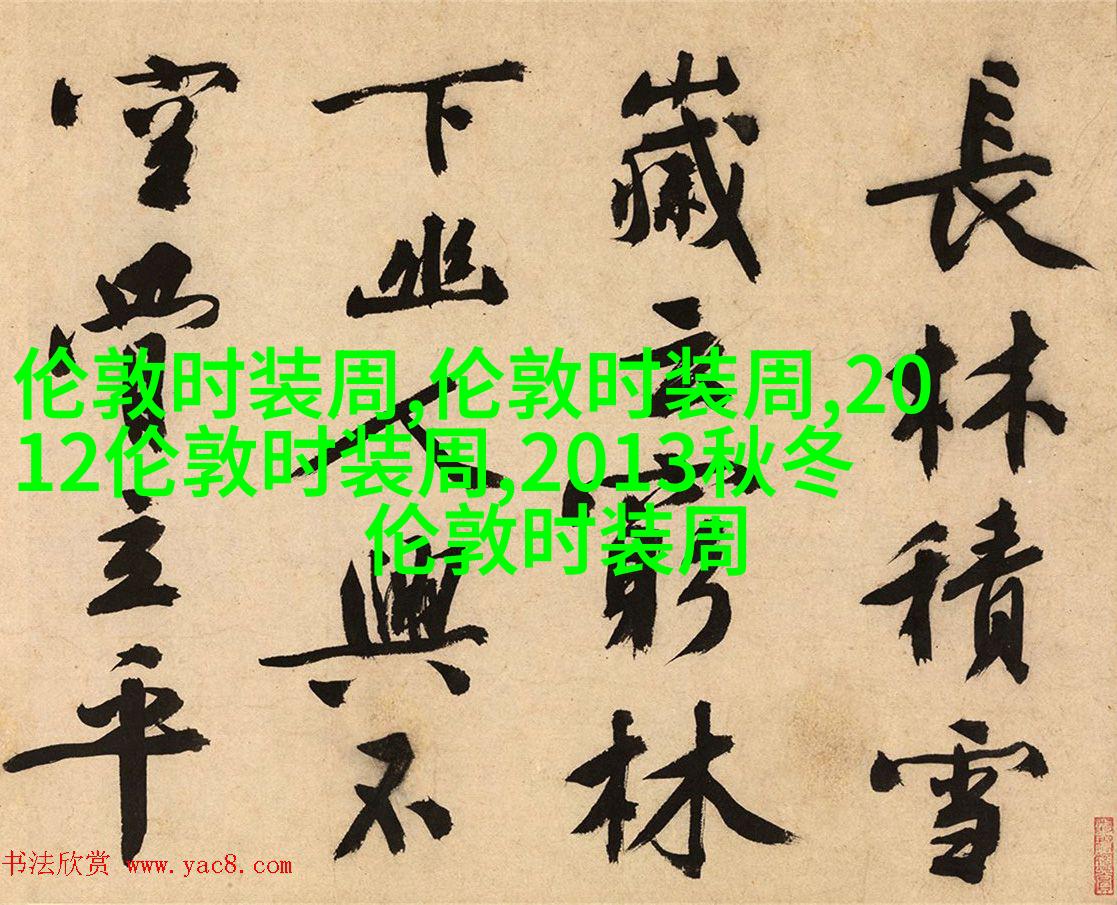 長林積雪
歲云窮林
下幽人興不
空立平
伦敦时装周,伦敦时装周,20
12伦敦时装周,2013秋冬
伦敦时装周
书法欣赏 www.yac8.com